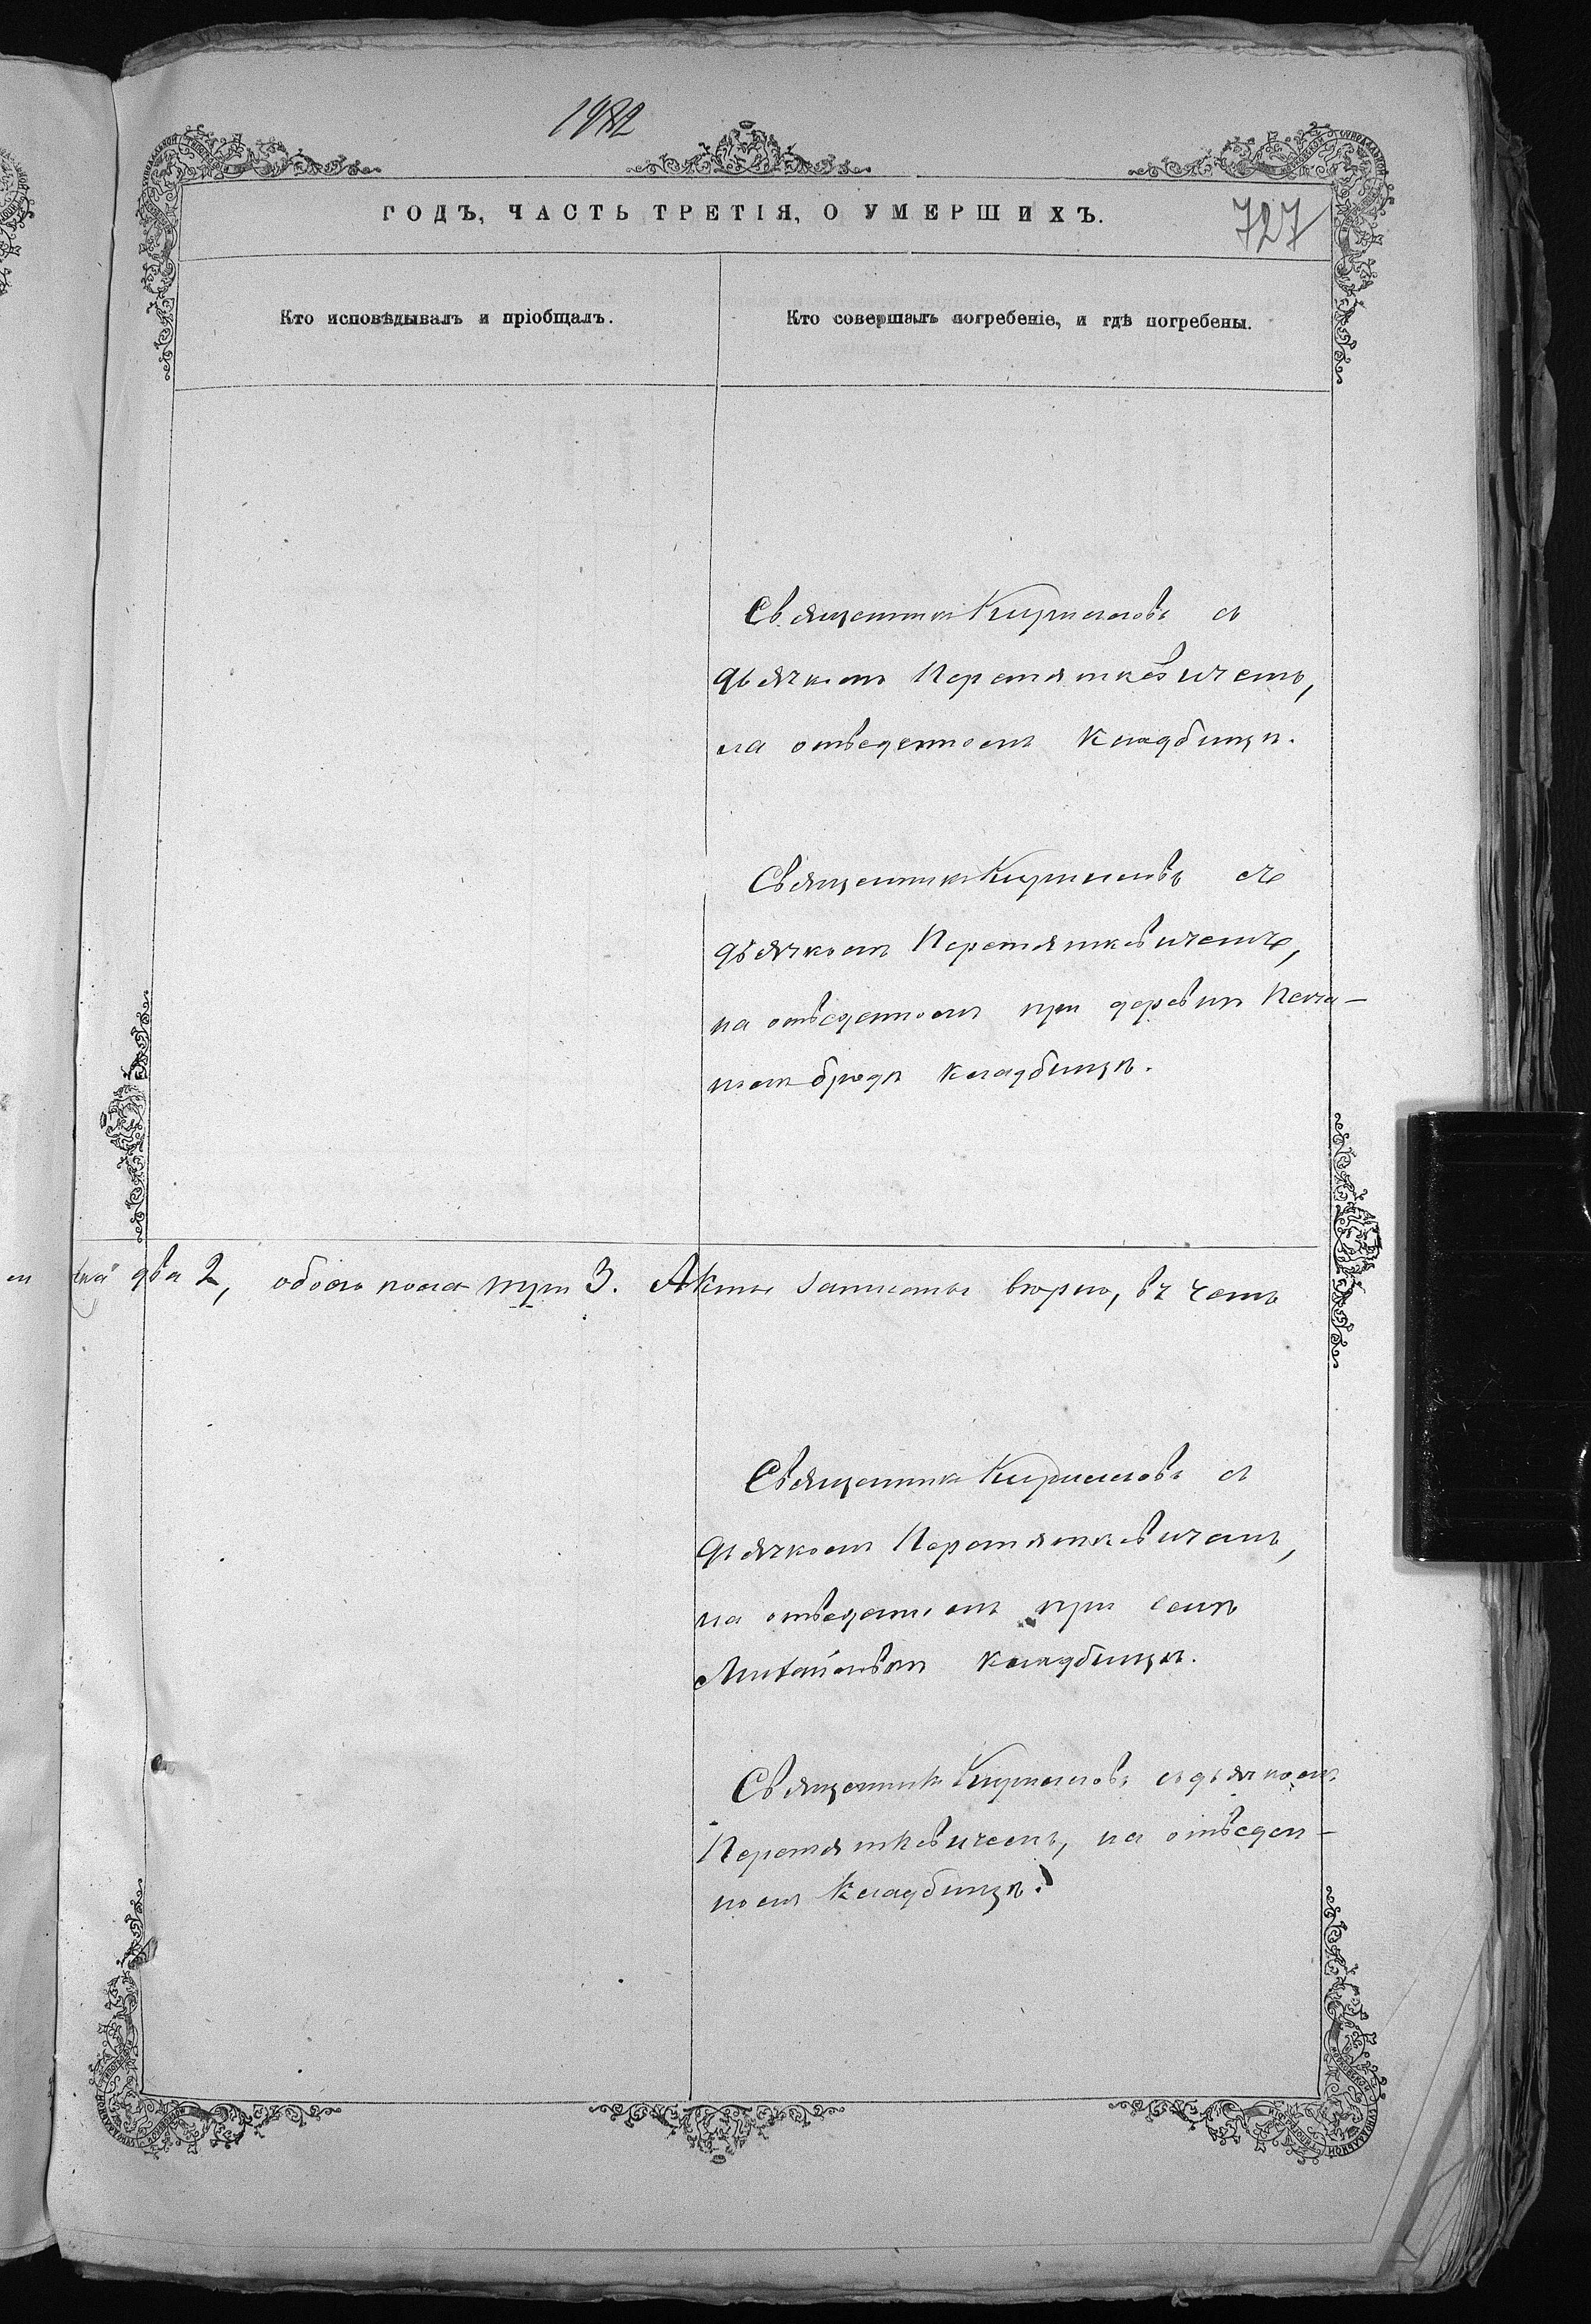 1982
ГОДЪ, ЧАСТЬ ТРЕТІЯ, О УМЕРШИХЪ.
727
Кто исповѣдывалъ и пріобщалъ.
Кто совершалъ погребеніе, и гдѣ погребены.
Священникъ Кирилловъ съ
дьячкомъ Перетяткевичемъ,
на отведенномъ кладбищѣ.
Священникъ Кирилловъ съ
дьячкомъ Перетяткевичемъ,
на отведенномъ при деревнѣ
кладбищѣ.
два 2, обоего пола три 3. Акты записаны вѣрно, въ чемъ
Священникъ Кирилловъ съ
дьячкомъ Перетяткевичемъ,
на отведенномъ при селѣ
Михайловкѣ кладбищѣ.
Священникъ Кирилловъ съ дьячкомъ
Перетяткевичемъ, на отведен-
номъ кладбищѣ.